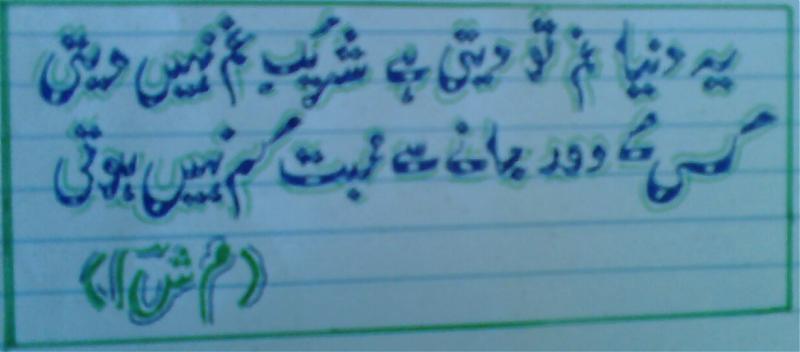 یہ دنیا غم تو دیتی ہے شریکِ غم نہیں دیتی
کسی کے دور جانے سے محبت کم نہیں ہوتی
(م ش ا)